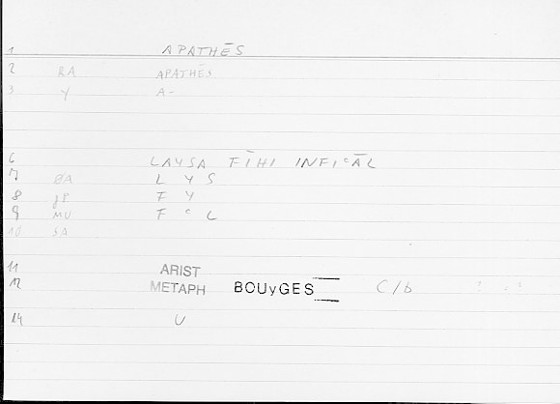 1 APATHĒS
2 RA APATHĒS
3 Y A-
6 LAYSA FĪHI INFIʿĀL
7 BA L Y S
8 JP F Y
9 MU F ʿ L
10 SA
11 ARIST
12 METAPH BOUyGES C/b
14 U